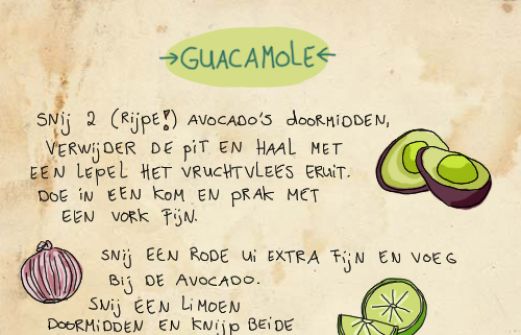 →GUACAMOLE←
SNIJ 2 (RIJPE!) AVOCADO'S DOORMIDDEN,
VERWIJDER DE PIT EN HAAL MET
EEN LEPEL HET VRUCHTVLEES ERUIT.
DOE IN EEN KOM EN PRAK MET
EEN VORK FIJN.
SNIJ EEN RODE UI EXTRA FIJN EN VOEG
BIJ DE AVOCADO.
SNIJ EEN LIMOEN
DOORMIDDEN EN KNIJP BEIDE